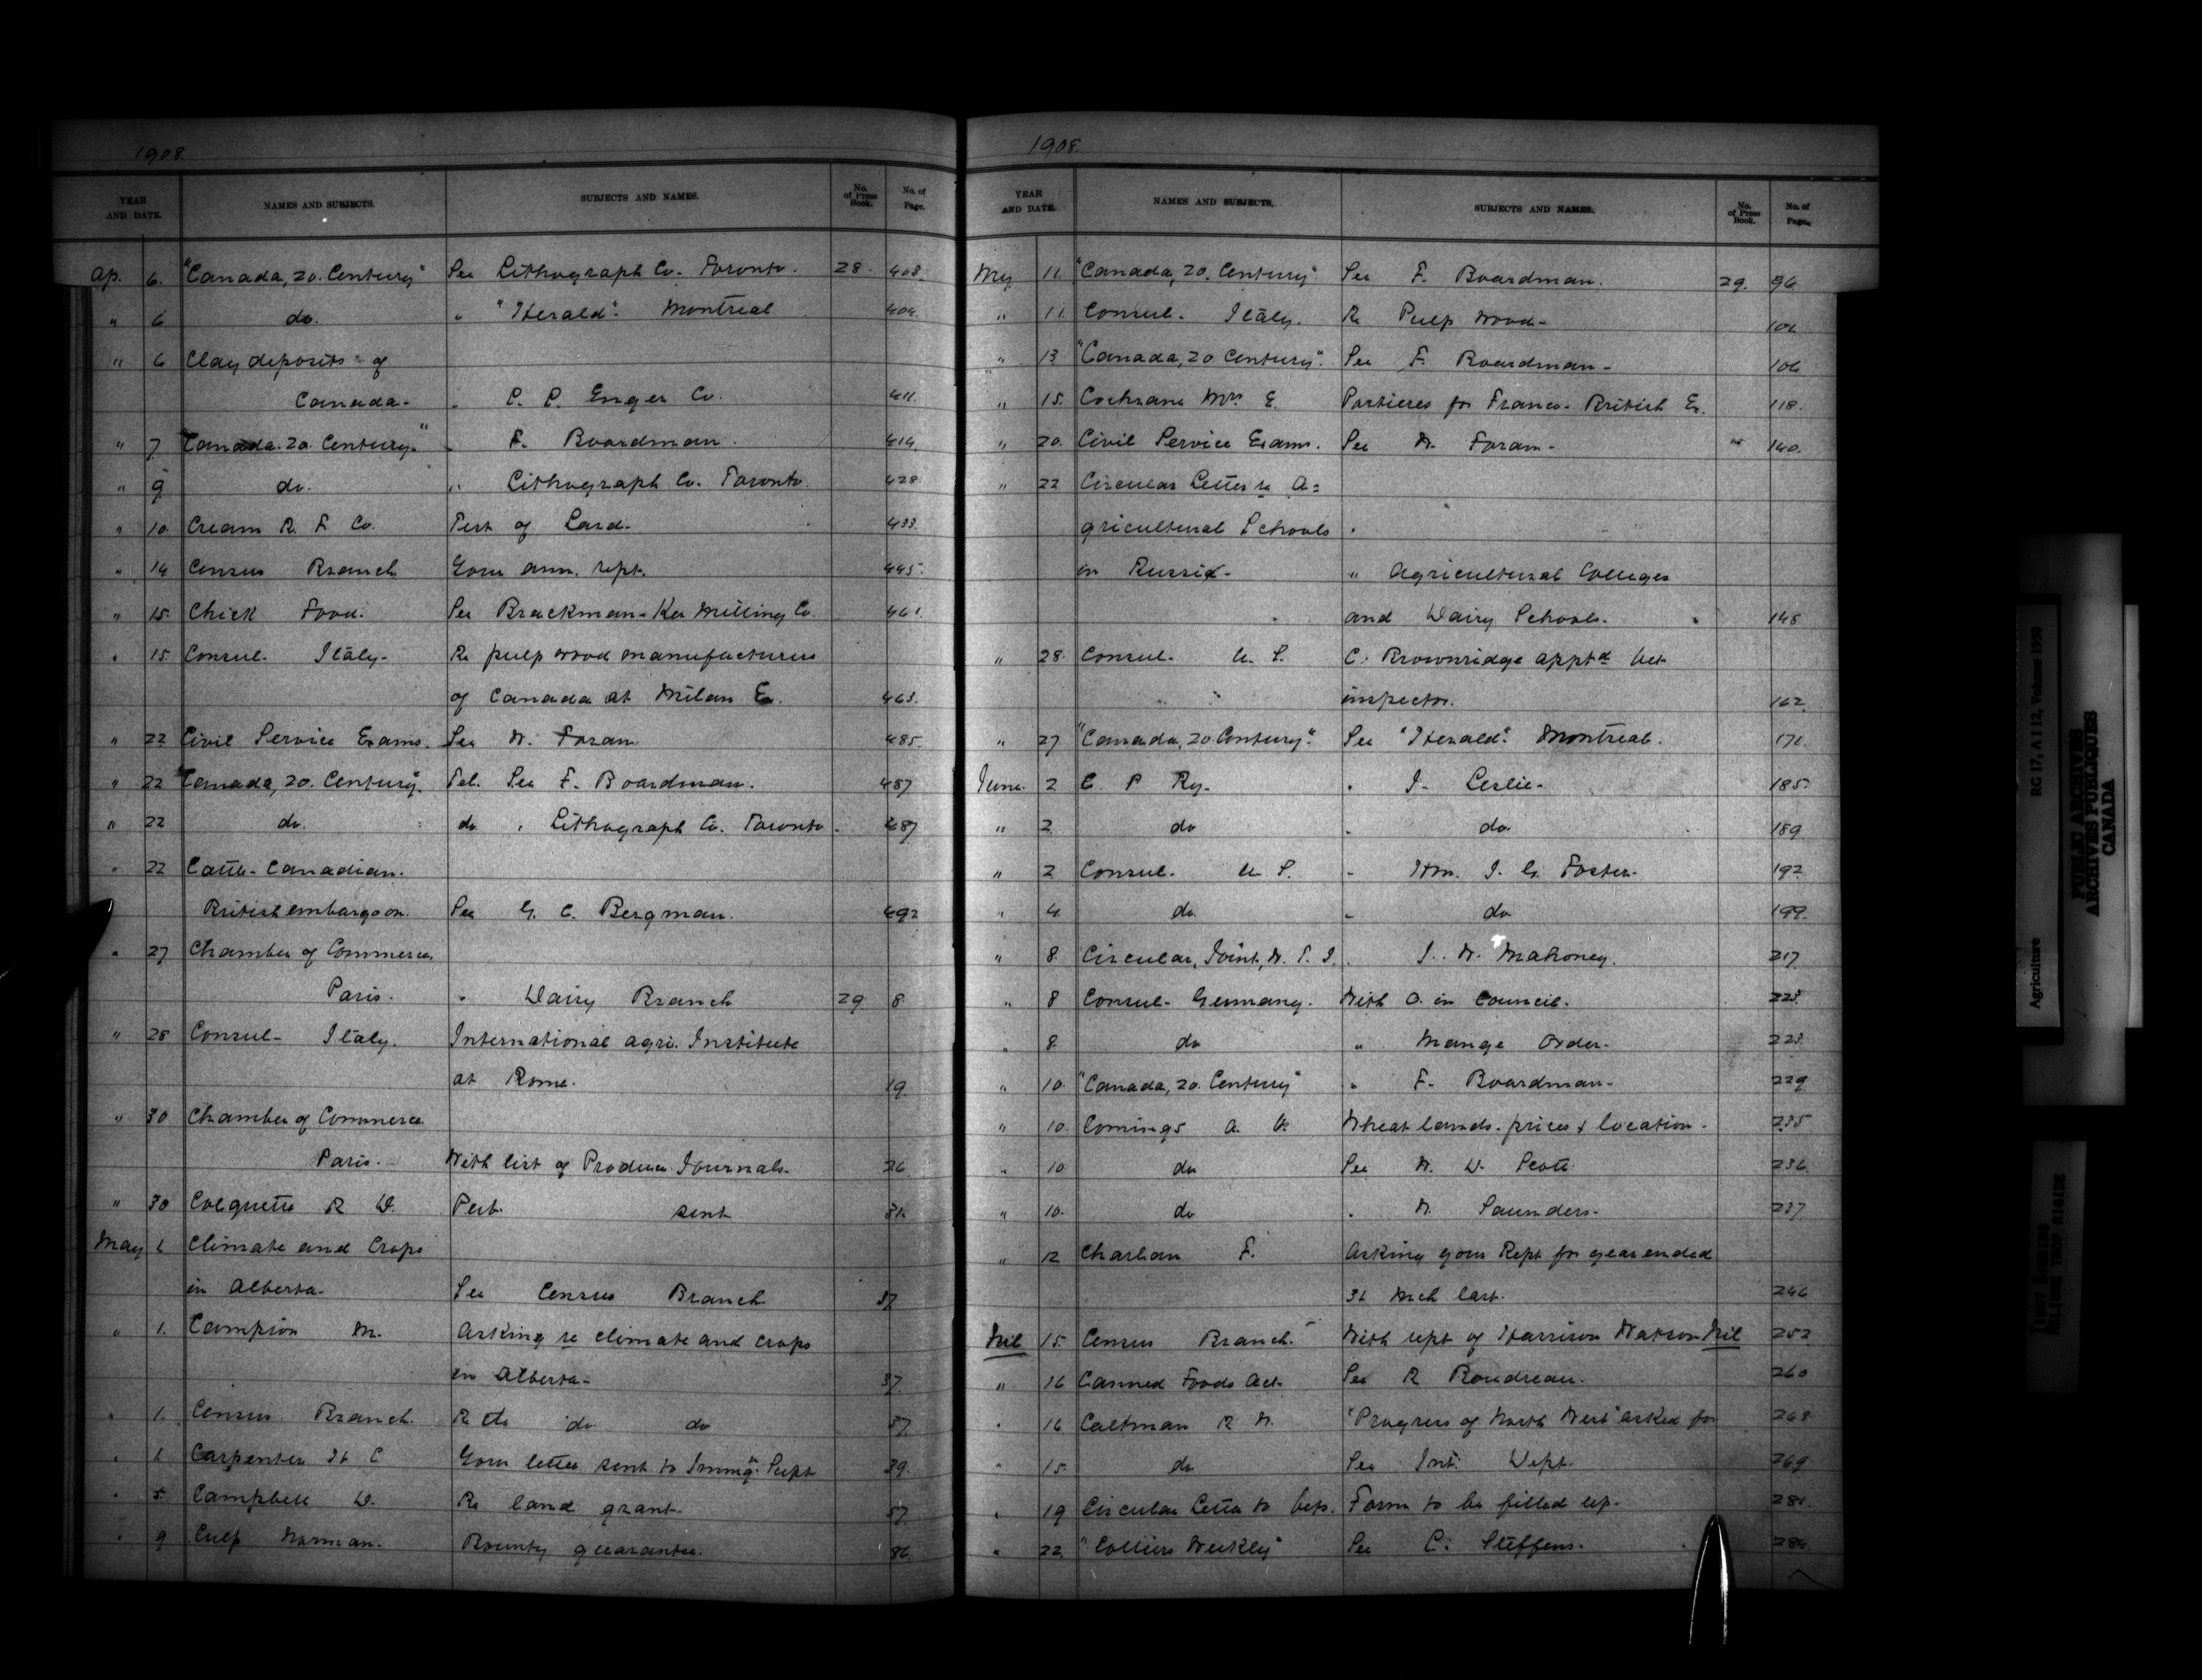 1908.
YEAR AND DATE. NAMES AND SUBJECTS. SUBJECTS AND NAMES. No. of Press Book. No. of Page.
Ap. 6. "Canada, 20. Century" See Lithograph Co. Toronto. 28. 403.
" 6 do. " "Herald". Montreal 404.
" 6 Clay deposits of
Canada - " P. P. Enger Co. 411.
" 7 "Canada. 20. Century." " F. Boardman. 414.
" 9 do. " Lithograph Co. Toronto. 428.
" 10. Cream R. F Co. Test of Lard. 433.
" 14 Census Branch Your ann. rept. 445.
" 15. Chick Food. See Brackman-Ker Milling Co. 461.
" 15. Consul. Italy. Re pulp wood manufactures
of Canada at Milan Ex. 463.
" 22 Civil Service Exams. See W. Foran 485.
" 22 "Canada, 20. Century". Tel. See F. Boardman. 487
" 22 do. do " Lithograph Co. Toronto. 487
" 22 Cattle - Canadian.
British embargo on. See G. C. Bergman. 492
" 27 Chamber of Commerce,
Paris. " Dairy Branch 29 8.
" 28 Consul - Italy. International Agri. Institute
at Rome. 19.
" 30 Chamber of Commerce
Paris. With list of Produce Journals. 26
" 30 Colquette R D. Pub. sent 31.
May 1 Climate and Crops
in Alberta. See Census Branch 37
" 1. Campion M. Asking re climate and crops
in Alberta - 37.
" 1. Census Branch. Re do do do 37
" 1. Carpenter H C Your letter sent to Immign. Supt 39.
" 5. Campbell D. Re land grant. 57
" 9 Culp Norman. Bounty guarantee. 86.
1908.
YEAR AND DATE. NAMES AND SUBJECTS. SUBJECTS AND NAMES. No. of Press Book. No. of Page.
My 11. "Canada, 20. Century". See F. Boardman. 29. 96
" 11. Consul. Italy. Re Pulp wood - 101
" 13 "Canada, 20. Century". See F. Boardman - 106
" 15. Cochrane Mrs. E. Portieres for Franco-British Ex. 118.
" 20. Civil Service Exams. See W. Foran - 140.
" 22 Circular Letter re A=
gricultural Schools
in Russia - " Agricultural Colleges
and Dairy Schools. 148
" 28. Consul. U. S. C. Brownridge apptd Vet.
inspector. 162
" 27 "Canada, 20. Century". See "Herald". Montreal. 171.
June. 2 C. P Ry. " J. Leslie - 185
" 2 do " do 189.
" 2 Consul. U S. " Hon. J. G. Foster. 192
" 4. do. " do 199.
" 8. Circular, Joint, W. T. I. " J. W. Mahoney. 217
" 8 Consul - Germany. With O. in Council. 223.
" 8. do " Mange Order. 223.
" 10. "Canada, 20. Century" " F. Boardman - 229
" 10. Comings A. V. Wheat lands. prices & location. 235
" 10 do See W. D. Scott 236.
" 10. do " W. Saunders. 237
" 12 Charlan F. Asking your Rept for year ended
31 Mch last. 246
Nil 15. Census Branch. With rept of Harrison Watson Nil 252
" 16 Canned Foods Act. See R Boudreau. 260
" 16 Caltman R W. "Progress of North West" asked for 268
" 15. do See Int. Dept. 269
" 19 Circular Letter to Vets. Form to be filled up. 281.
" 22. "Colliers Weekly" See C. Steffens. 284.
Agriculture RG 17, A I 12, Volume 1930
PUBLIC ARCHIVES
ARCHIVES PUBLIQUES
CANADA